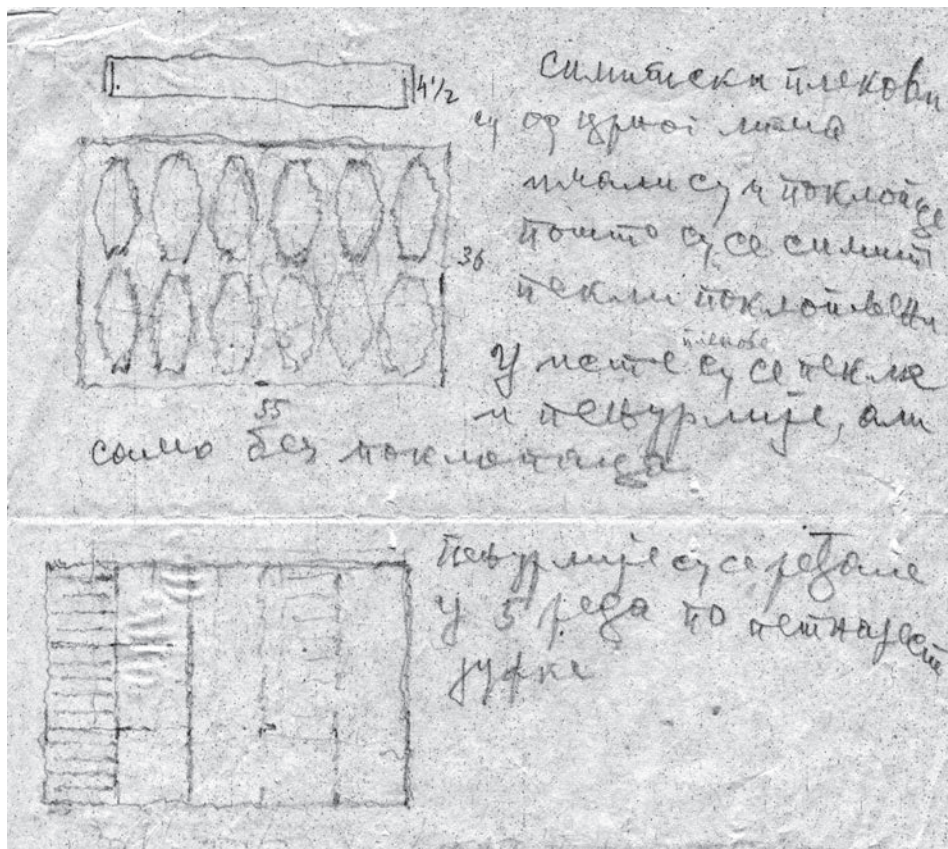 4 1/2
симитски плекови
су од црног лима
имали су и поклопце
пошто су се симит
пекли поклопљени
36
плекове
У исте су се пекле
55
и пењурлије, али
само без поклопаца
пењурлије су се ређале
у 5 реда по петнаест
јуфке